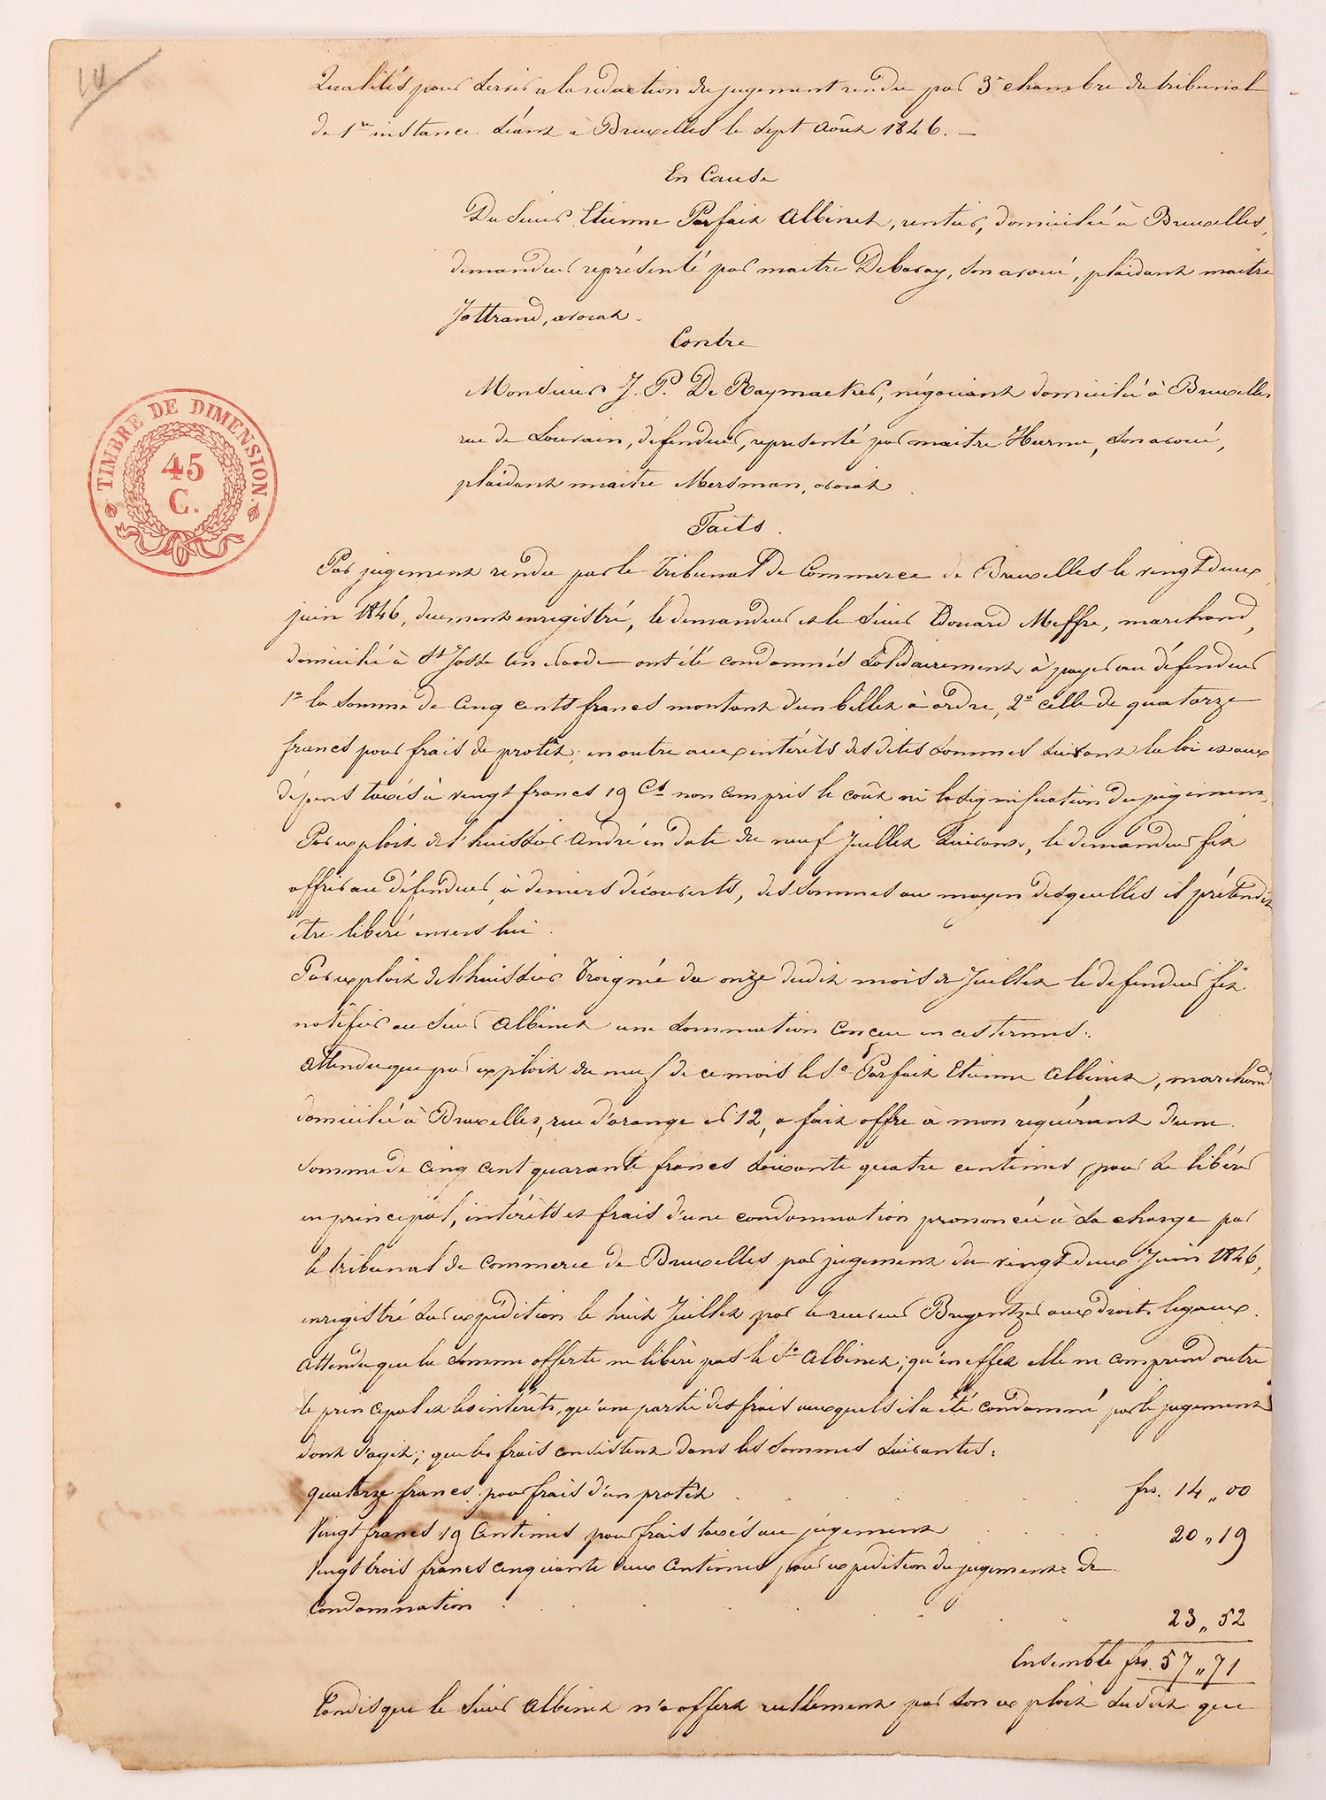 14
Qualités pour servir a la rédaction du jugement rendu par 3e chambre du tribunal
de 1re instance séant à Bruxelles le sept août 1846. —
En Cause
Du Sieur Etienne Parfait Albinet, rentier, domicilié à Bruxelles,
demandeur représenté par maitre Debaray, son avoué, plaidant maitre
Jottrand, avocat.
Contre
Monsieur J. P. De Raymaeker, négociant domicilié à Bruxelles
rue de Louvain, défendeur, représenté par maitre Hurme, son avoué,
plaidant maitre Mersman, avocat.
Faits.
Par jugement rendu par le Tribunal de Commerce de Bruxelles le vingt deux
juin 1846, duement enregistré, le demandeur et le Sieur Edouard Meffre, marchand,
domicilié à St Josse ten noode ont été condamnés solidairement à payer au défendeur
1o la somme de cinq cents francs montant d'un billet à ordre, 2o celle de quatorze
francs pour frais de protêt, en outre aux intérêts des dites sommes suivant la loi et aux
dépens taxés à vingt francs 19 Cs non compris le coût ni la signification du jugement.
Par exploit de l'huissier André en date du neuf Juillet suivant, le demandeur fit
offrir au défendeur, à deniers découverts, des sommes au moyen desquelles il prétendit
être libéré envers lui.
Par exploit de l'huissier Troignié du onze dudit mois de Juillet le defendeur fit
notifier au Sieur Albinet une sommation conçue en ces termes:
Attendu que par exploit du neuf de ce mois le Sr Parfait Etienne Albinet, marchand
domicilié à Bruxelles, rue d'orange no 12, a fait offre à mon requérant d'une
somme de cinq cent quarante francs soixante quatre centimes, pour se libérer
en principal, intérêts et frais d'une condamnation prononcée à sa charge par
le tribunal de commerce de Bruxelles par jugement du vingt deux Juin 1846,
enregistré sur expédition le huit Juillet par le receveur Bugentzer aux droits legaux.
Attendu que la somme offerte ne libère pas le Sr Albinet; qu'en effet elle ne comprend outre
le principal et les intérêts, qu'une partie des frais auxquels il a été condamné par le jugement
dont s'agit; que les frais consistent dans les sommes suivantes:
quatorze francs pour frais d'un protêt frs. 14,,00
Vingt francs 19 Centimes pour frais taxés au jugement 20,,19
Vingt trois francs cinquante deux centimes pour expédition du jugement de
condamnation 23,,52
Ensemble frs. 57,,71
Tandis que le Sieur Albinet n'a offert reellement par son exploit susdit que
TIMBRE DE DIMENSION.
45
C.